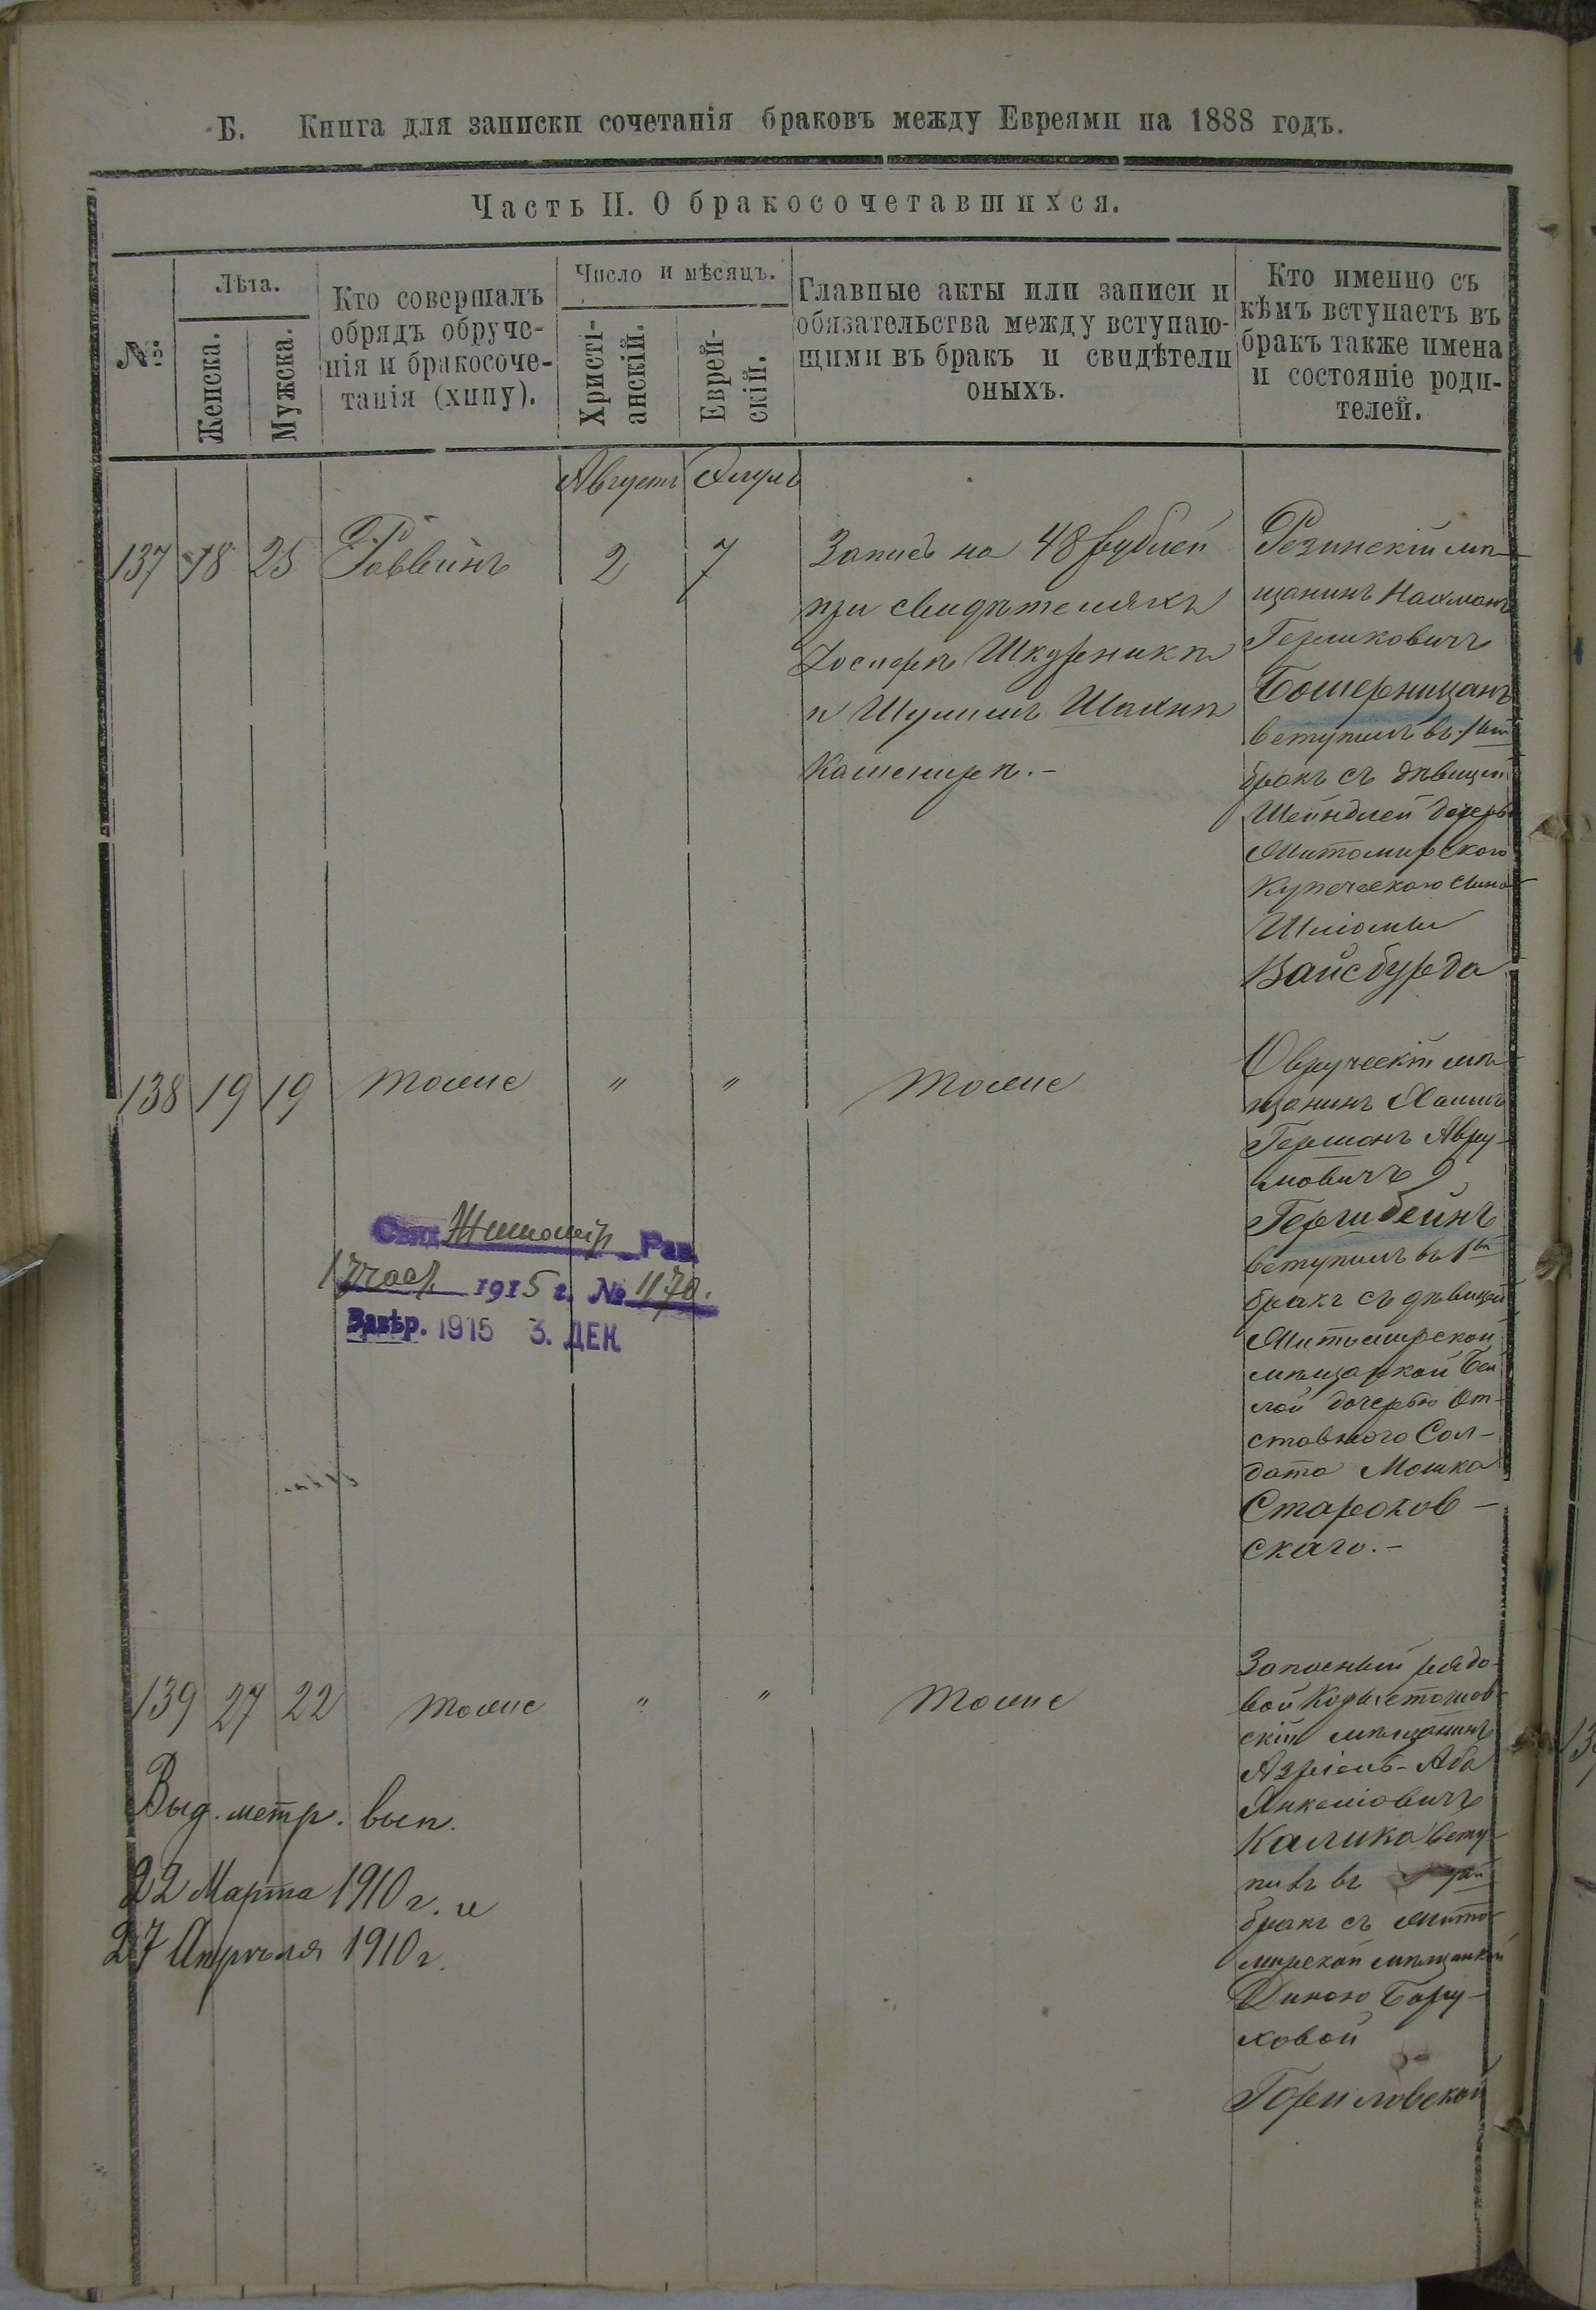 Б. Книга для записки сочетанія браковъ между Евреями на 1888 годъ.
Часть II. О бракосочетавшихся.
№
Лѣта.
Женска.
Мужска.
Кто совершалъ
обрядъ обруче-
нія и бракосоче-
танія (хипу).
Число и мѣсяцъ.
Христі-
анскій.
Еврей-
скій.
Главные акты или записи и
обязательства между вступаю-
щими въ бракъ и свидѣтели
оныхъ.
Кто именно съ
кѣмъ вступаетъ въ
бракъ также имена
и состояніе роди-
телей.
Августъ Элулъ
137 18 25 Раввинъ 2 7
Запись на 48 рублей
при свидѣтеляхъ
Іосифѣ Шкурникѣ
и Шулимъ Шахнѣ
Кашенирѣ.-
Резинскій мѣ-
щанинъ Нахманъ
Гершковичъ
Бошерницанъ
вступилъ въ 1ый
бракъ съ дѣвицей
Шейндлей дочерью
Житомирского
Купеческаго сына
Шліомы
Вайсбурда
138 19 19 тоже " " тоже
Овручскій мѣ-
щанинъ Хаимъ
Гершонъ Авру-
мовичъ
Гершбейнъ
вступилъ въ 1ый
бракъ съ дѣвицей
Житомирской
мѣщанкой Бей
лой дочерью От-
ставного Сол-
дата Мошка
Староков-
скаго.-
Свид Житомір Рав.
1915 г. № 1170.
Завѣр. 1915 3. ДЕК
139 27 22 тоже " " тоже
Запасный рядо-
вой Коростышов-
скій мѣщанинъ
Азріель-Аба
Янкеліовичъ
Калика всту-
пивъ въ
бракъ съ Жито-
мирской мѣщанкой
Диною Бору-
ховой
Гориловской
Выд. метр. вып.
22 Марта 1910 г. и
27 Апрѣля 1910 г.